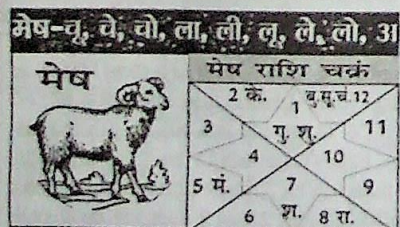 मेष-चू, चे, चो, ला, ली, लू, ले, लो, अ
मेष
मेष राशि चक्रं
2 के. 1 बु.सू.चं. 12
3 गु. शु. 11
4 10
5 मं. 7 9
6 श. 8 रा.